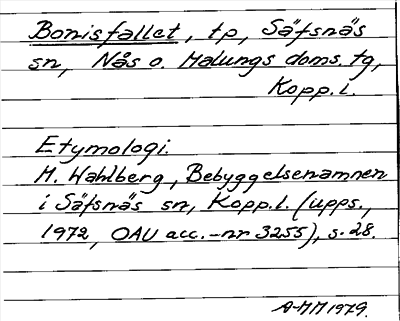 Bonisfallet, tp, Säfsnäs
sn, Nås o. Malungs doms. tg,
Kopp. l.
Etymologi.
M. Wahlberg, Bebyggelsenamnen
i Säfsnäs sn, Kopp.l. (upps.,
1972, OAU acc.-nr 3255), s. 28.
A-MM 1979.